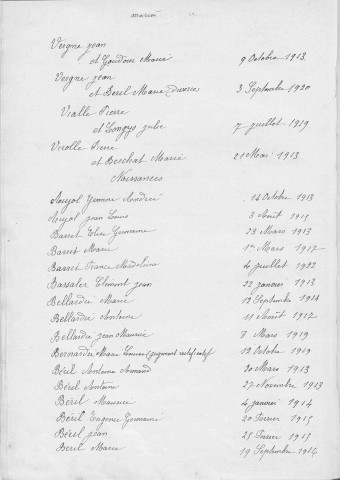 Vergne Jean
et Goudour Marie 9 Octobre 1913
Vergne Jean
et Béril Marie 3 Septembre 1920
Vialle Pierre
et Longys Julie 7 juillet 1919
Virolle Pierre
et Beschat Marie 21 Mai 1913
Naissances
Aujol Yvonne Andrée 14 Octobre 1913
Aujol Jean Louis 3 Août 1915
Barret Germaine 23 Mars 1913
Barret Marie 1er Mars 1917
Barret France Madeleine 4 juillet 1922
Bassaler Clément Jean 22 janvier 1913
Bellardie Marie 12 Septembre 1914
Bellardie Antoine 11 Août 1917
Bellardie Jean Maurice 8 Mars 1919
Bernardie Marie Louise (jugement rectificatif 12 Octobre 1919
Béril Antoine Armand 20 Mars 1913
Béril Antoine 27 Novembre 1913
Béril Maurice 4 janvier 1914
Béril Eugénie Germaine 20 Février 1915
Béril Jean 25 Février 1915
Béril Marie 19 Septembre 1916